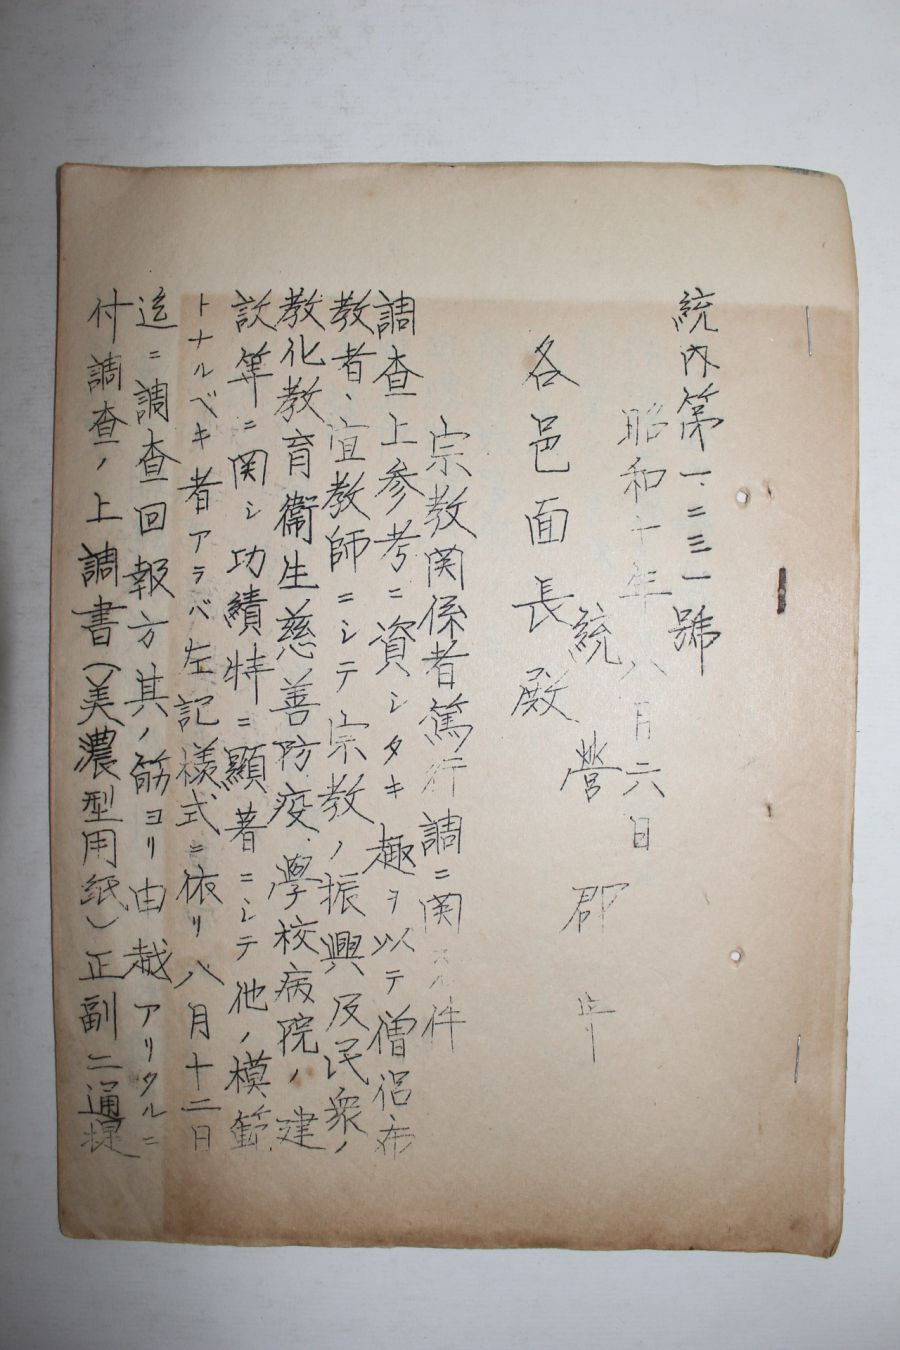 統内第一二三一號
昭和十年八月六日
統營郡
各邑面長殿
宗教関係者篤行調ニ関スル件
調査上参考ニ資シタキ趣ヲ以テ僧侶布
教者、宣教師ニシテ宗教ノ振興及民衆ノ
教化教育衞生慈善防疫、學校病院ノ建
設等ニ関シ功績特ニ顯著ニシテ他ノ模範
トナルベキ者アラバ左記様式ニ依リ八月十二日
迄ニ調査回報方其ノ筋ヨリ由越アリタルニ
付調査ノ上調書(美濃型用紙)正副二通提